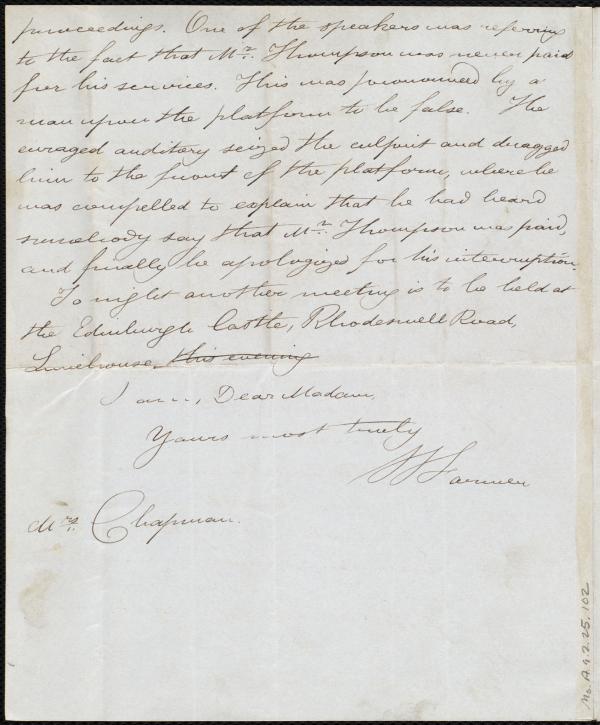 proceedings. One of the speakers was referring
to the fact that Mr. Thompson was never paid
for his services. This was pronounced by a
man upon the platform to be false. The
enraged auditory seized the culprit and dragged
him to the front of the platform, where he
was compelled to explain that he had heard
somebody say that Mr. Thompson was paid,
and finally he apologized for his interruption.
To night another meeting is to be held at
the Edinburgh Castle, Rhodeswell Road,
Limehouse, this evening
I am, Dear Madam,
Yours most truly
Farmer
Mrs. Chapman.
Ms. A. 9. 2. 25. 102